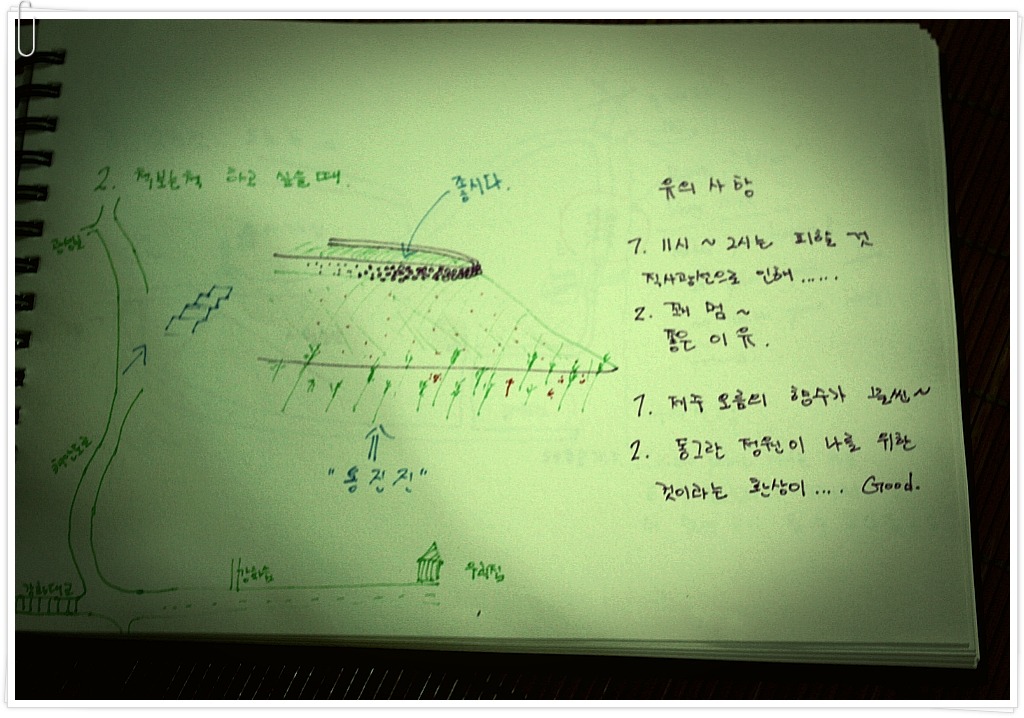 2. 책보는척 하고 싶을때.
좋시다.
해안도로
강화대교
"용진진"
우체점
유의사항
1. 11시 ~ 2시는 피할 것
직사광선으로 인해......
2. 꽤 멈~
좋은 이유.
1. 제주 오름의 향수가 물씬~
2. 동그란 정원이 나를 위한
것이라는 환상이.... Good.